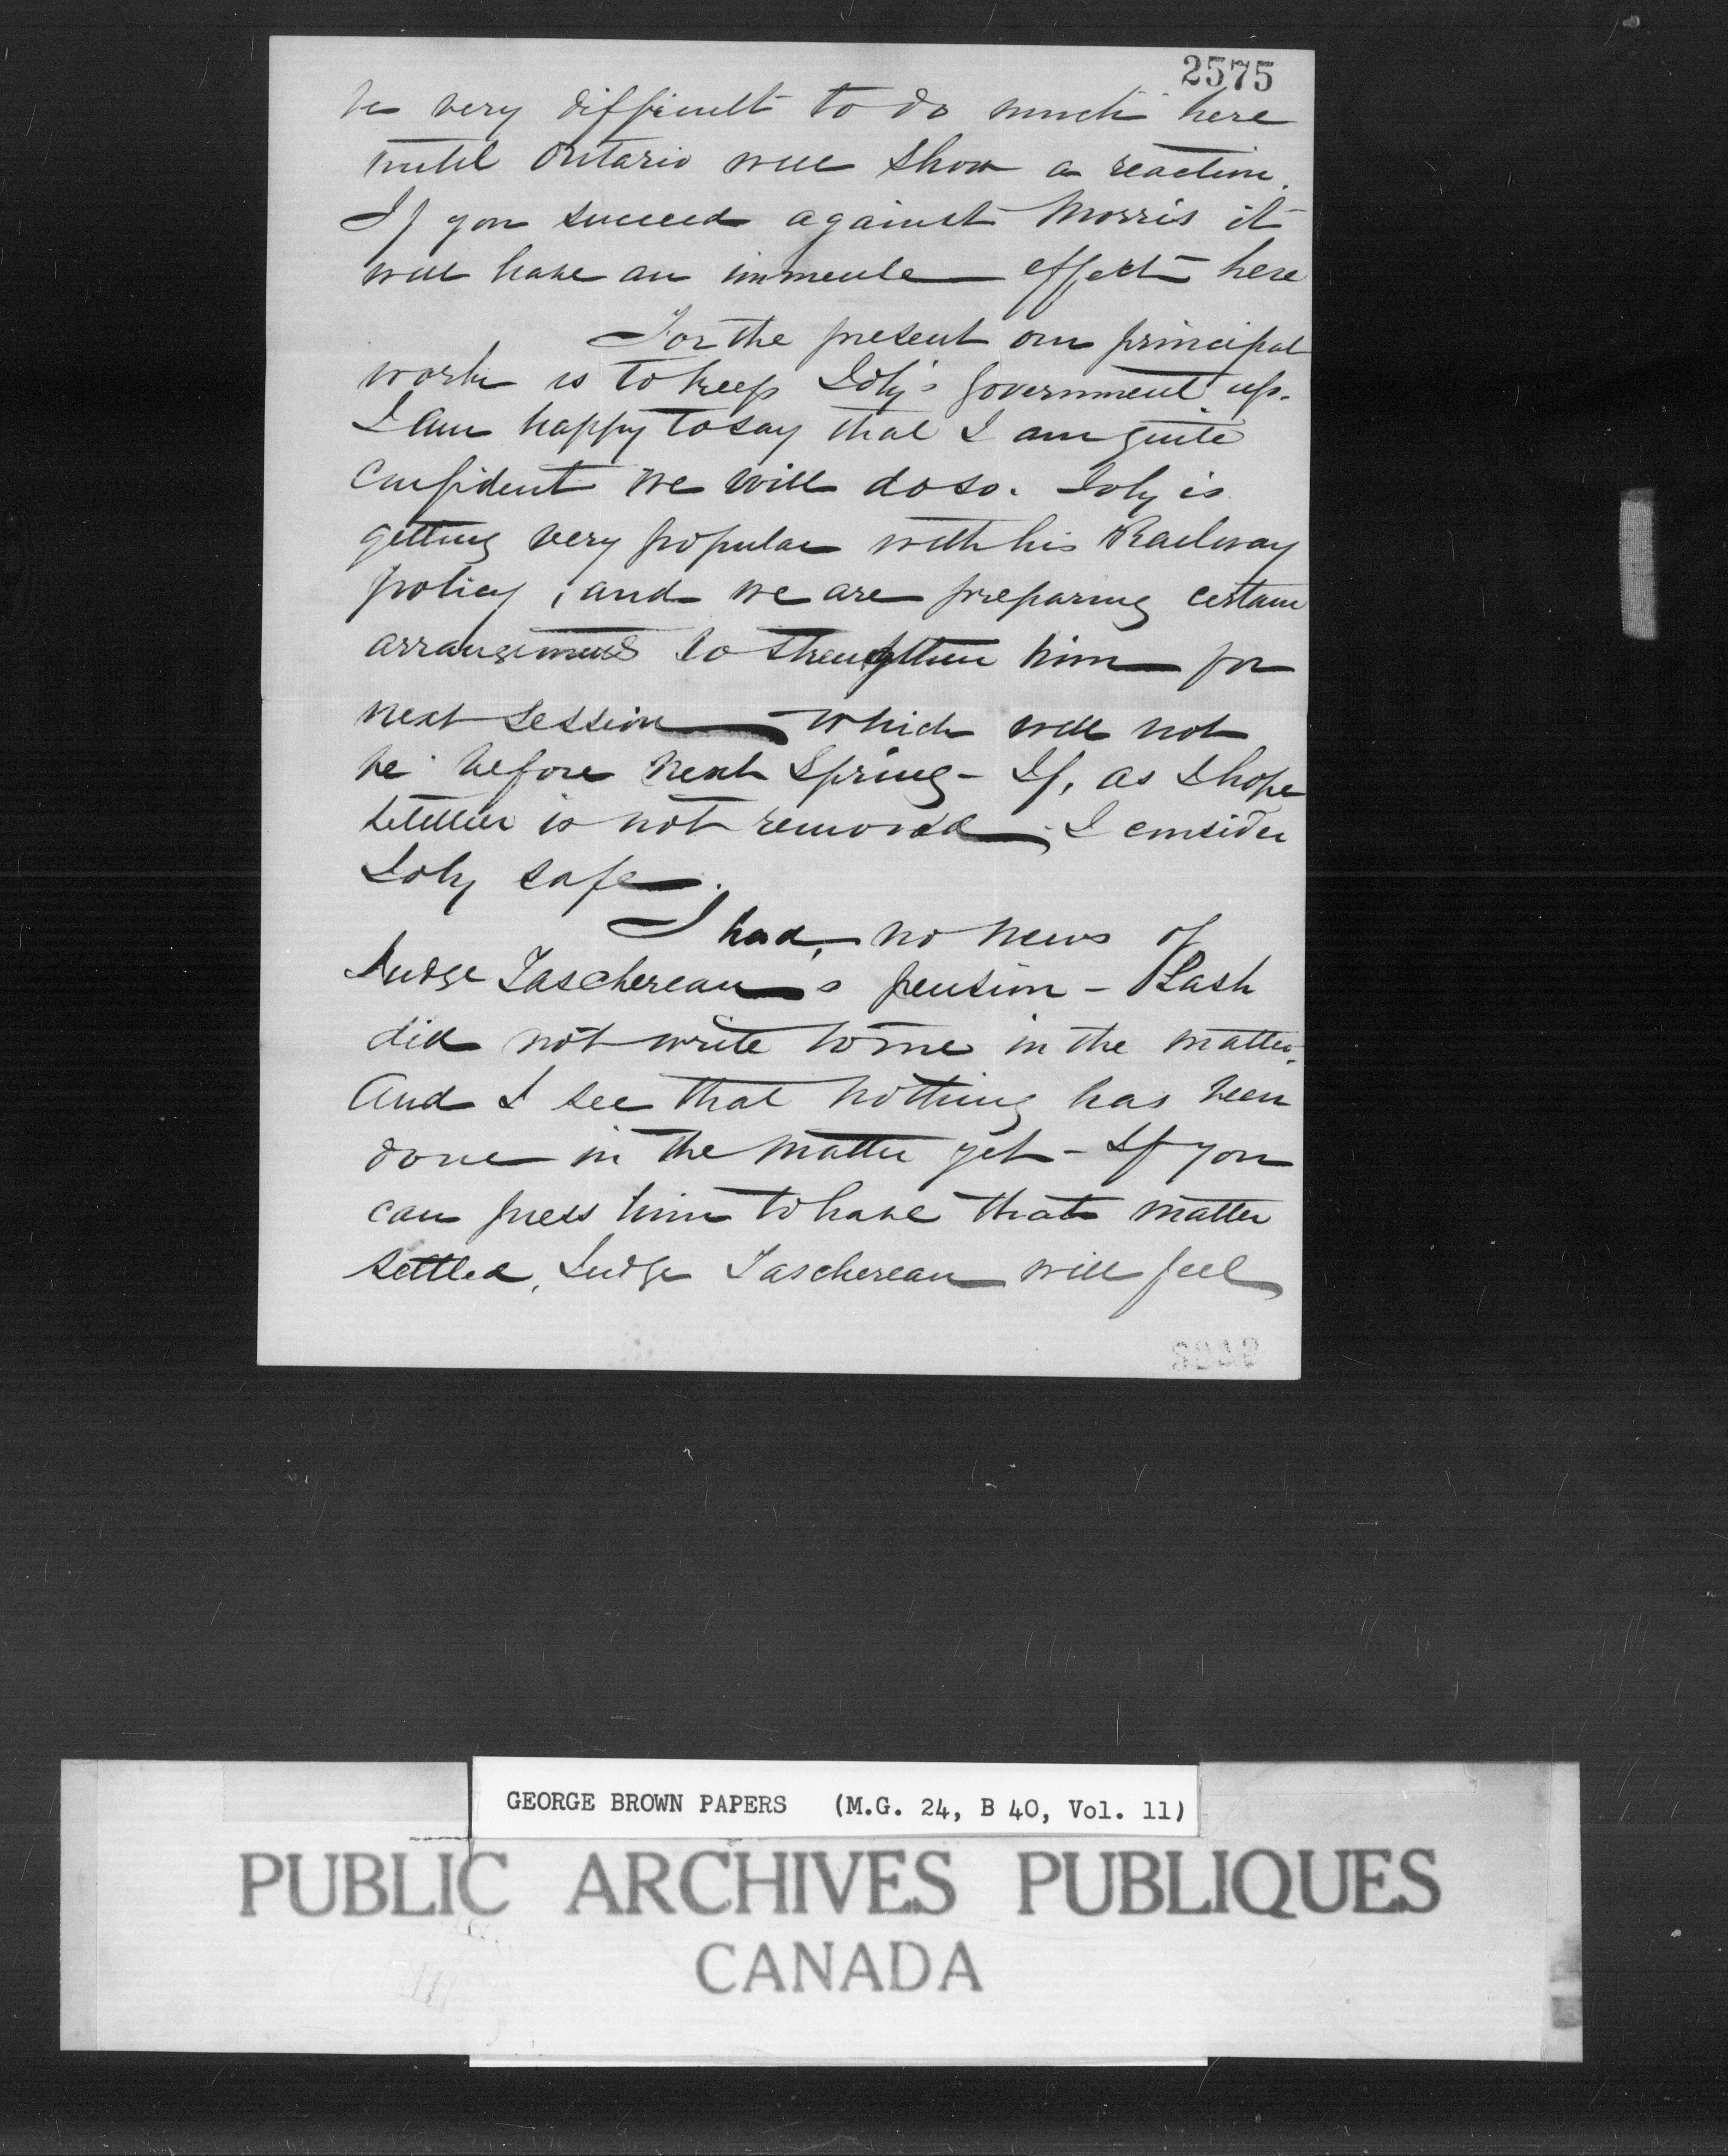 2575
be very difficult to do much here
until Ontario will show a reaction.
If you succeed against Morris it
will have an immense effect here
For the present our principal
work is to keep Joly's government up.
I am happy to say that I am quite
confident we will do so. Joly is
getting very popular with his Railway
policy, and we are preparing certain
arrangements to strengthen him for
next session which will not
be before next Spring - If, as I hope
Letellier is not removed, I consider
Joly safe.
I had, no news of
Judge Taschereau's pension - Lash
did not write to me in the matter.
And I see that nothing has been
done in the matter yet - If you
can press him to have that matter
settled, Judge Taschereau will feel
GEORGE BROWN PAPERS (M.G. 24, B 40, Vol. 11)
PUBLIC ARCHIVES PUBLIQUES
CANADA